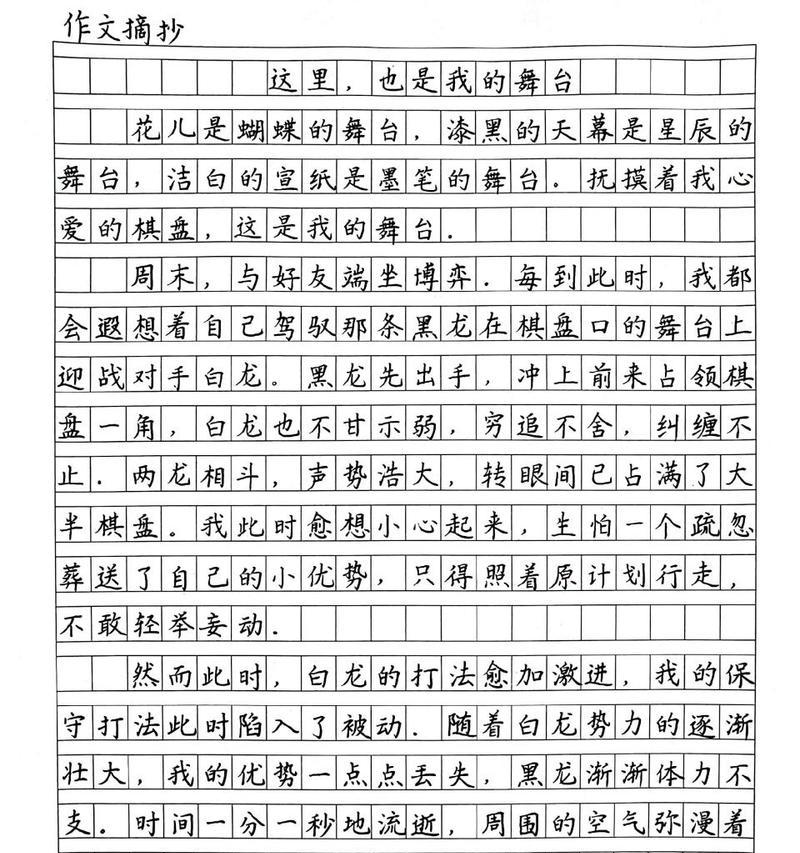 作文摘抄
这里，也是我的舞台
花儿是蝴蝶的舞台，漆黑的天幕是星辰的
舞台，洁白的宣纸是墨笔的舞台。抚摸着我心
爱的棋盘，这是我的舞台.
周末，与好友端坐博弈.每到此时，我都
会遐想着自己驾驭那条黑龙在棋盘口的舞台上
迎战对手白龙。黑龙先出手，冲上前来占领棋
盘一角，白龙也不甘示弱，穷追不舍，纠缠不
止.两龙相斗，声势浩大，转眼间已占满了大
半棋盘。我此时愈想小心起来，生怕一个疏忽
葬送了自己的小优势，只得照着原计划行走，
不敢轻举妄动.
然而此时，白龙的打法愈加激进，我的保
守打法此时陷入了被动.随着白龙势力的逐渐
壮大，我的优势一点点丢失，黑龙渐渐体力不
支.时间一分一秒地流逝，周围的空气弥漫着